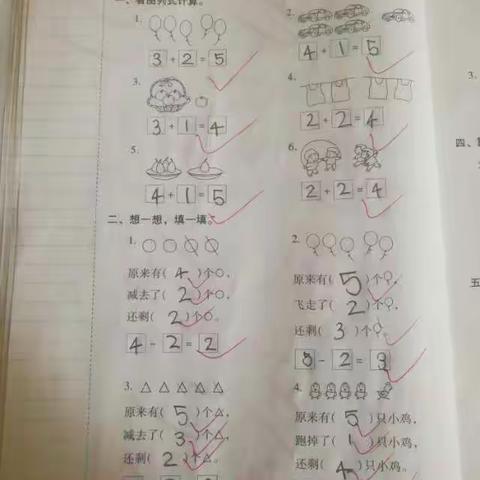 一、看图列式计算。
1.
3+2=5
2.
4+1=5
3.
3+1=4
4.
2+2=4
5.
4+1=5
6.
2+2=4
二、想一想，填一填。
1.
原来有(4)个○，
减去了(2)个○，
还剩(2)个○。
4-2=2
2.
原来有(5)个，
飞走了(2)个，
还剩(3)个
-2=3
3.
原来有(5)个△，
减去了(3)个△，
还剩(2)个△。
4.
原来有(5)只小鸡，
跑掉了(1)只小鸡，
还剩(4)只小鸡。
3.
四、
五